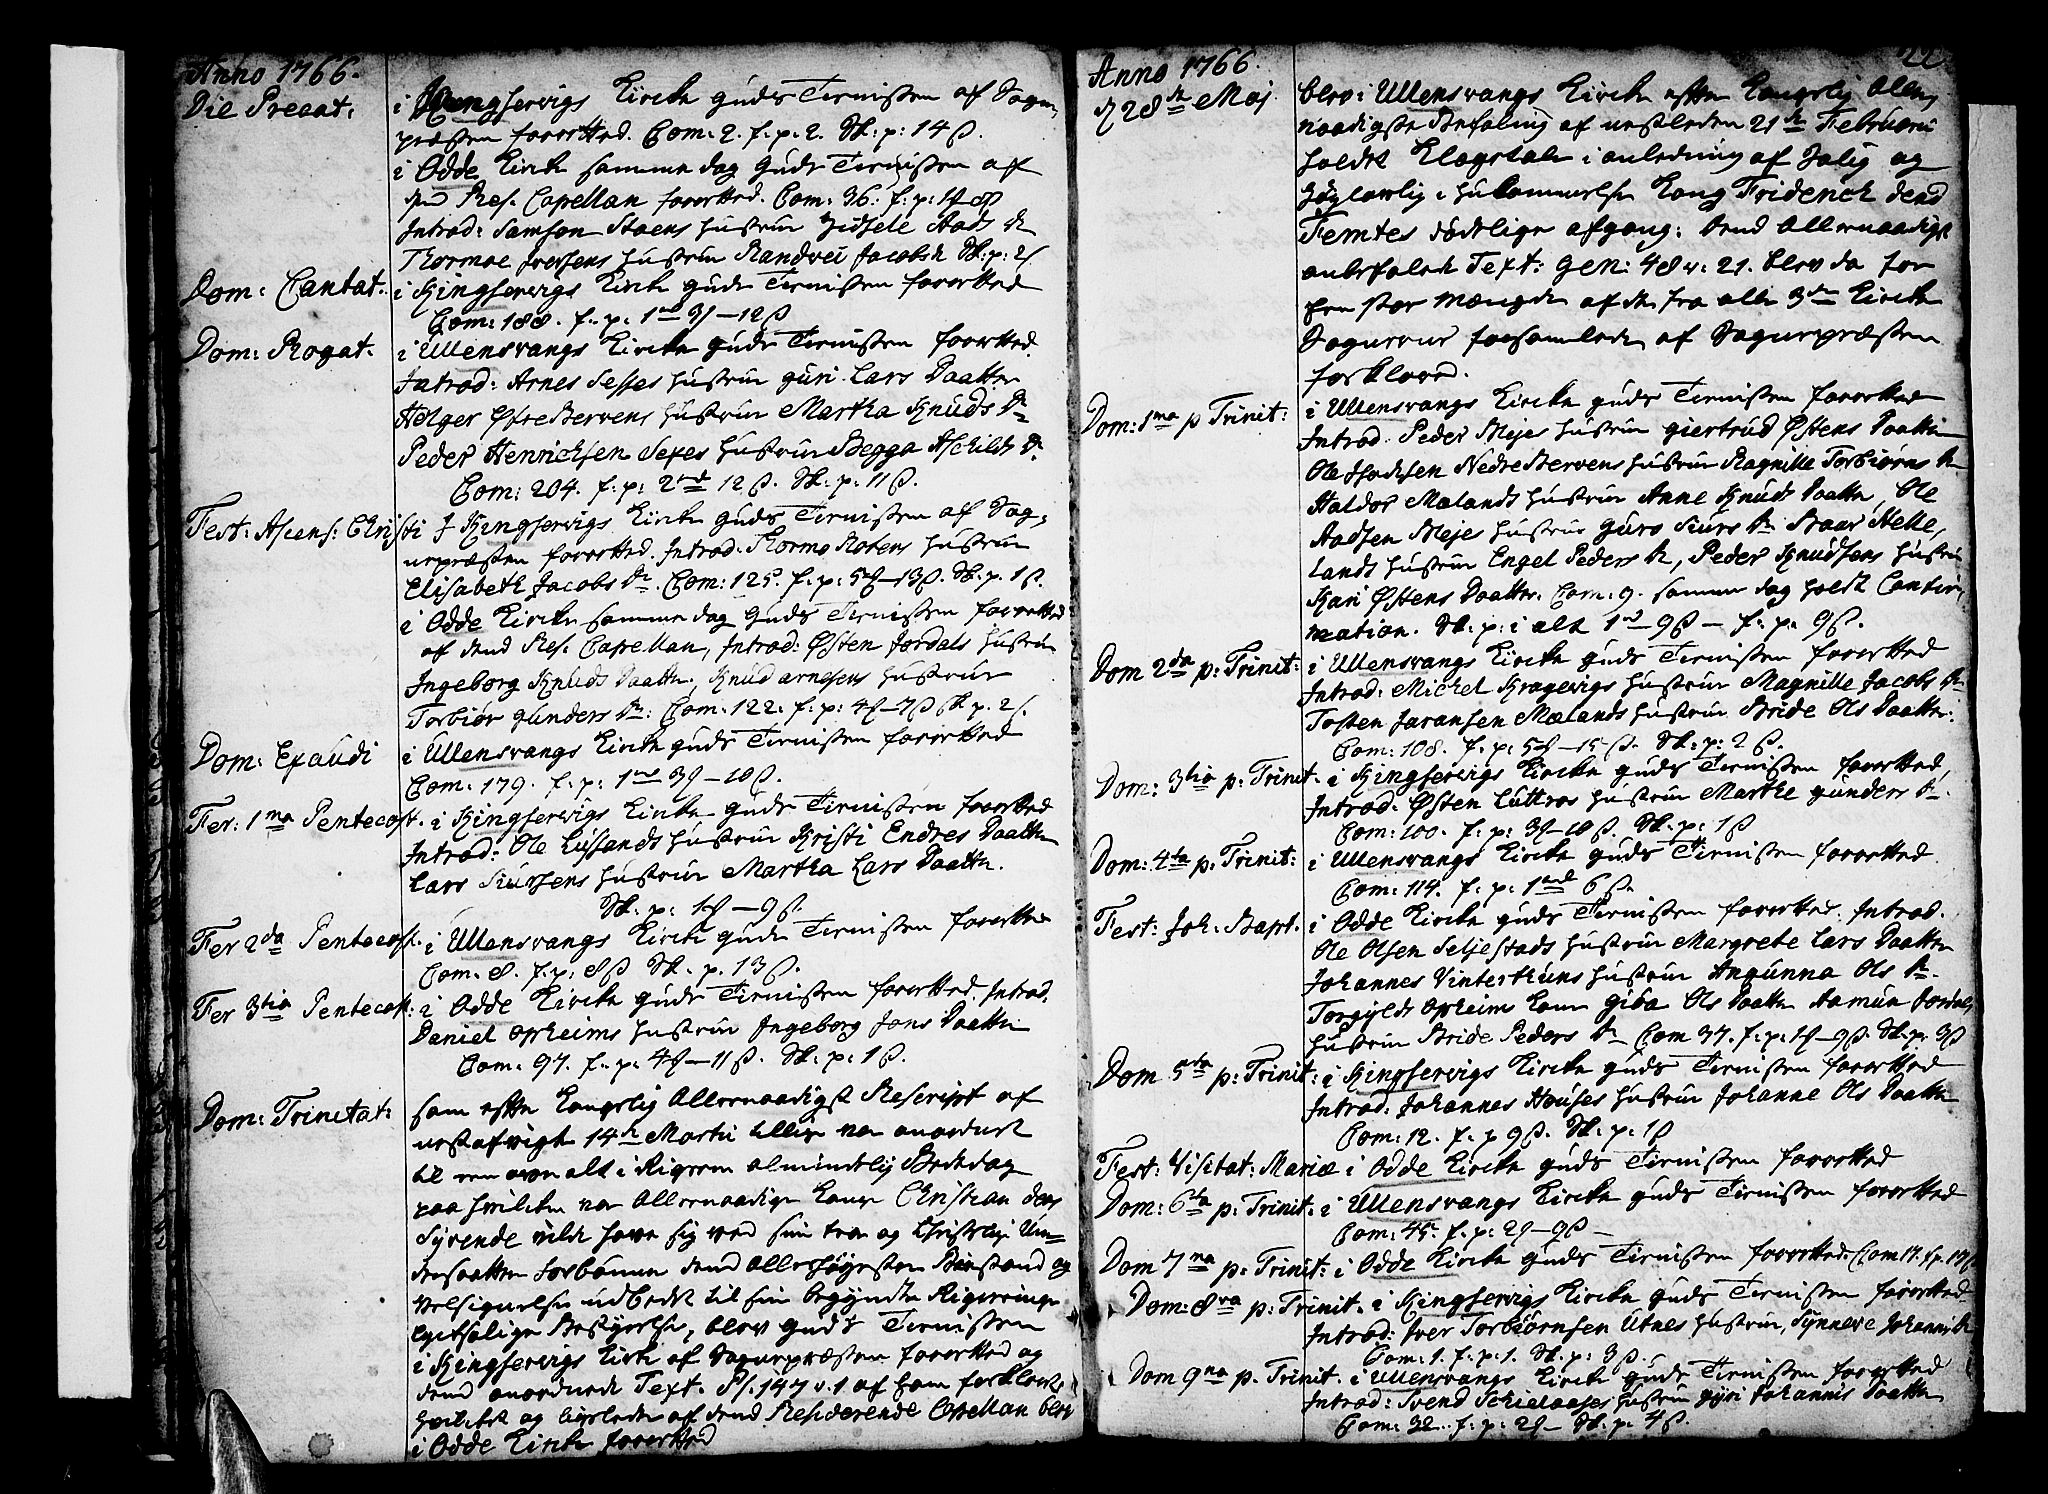 Anno 1766.
Die Precat: i Kingservigs Kircke Guds Tienisten af Sogne
præsten forretted. Com: 2. f. p. 2. Sk: p: 14ß.
i Odde Kircke samme dag Guds Tienisten af
den Res. Capellan forrettet. Com: 36. f: p:
Introd: Samson Hustrue Aads d
Thormoe Iversens Hustrue Randvei Jacobsd Sk: p:
Dom: Cantat. i Kingservigs Kircke Guds Tienisten forrettet
Com: 188. f. p: 1rd 3ƒ–12ß
Dom: Rogat. i Ullensvangs Kircke Guds Tienisten forrettet.
Introd: Arnes Hustrue Guri Lars Daatter
Helger Øfre Bervens Hustrue Martha Knuds Dr
Peder Henrichsen Sexes Hustrue Begga Aschilds Dr
Com: 204. f: p: 2rd 12ß. Sk: p: 11ß.
Fest: Ascens: Christi I Kingservigs Kircke Guds Tienisten af Sog-
nepræsten forretted. Introd: Thormo Rotens Hustrue
Elisabeth Jacobs Dr Com: 125. f. p: 5ƒ–13ß. Sk. p. 1ß.
i Odde Kircke samme dag Guds Tienisten forrettet
af dend Res. Capellan, Introd: Østen Jordals Hustrue
Ingeborg Knuds Daatter. Knud Arnesens Hustrue
Torbiør Gunders Dr: Com: 122: f. p: 4ƒ–7ß Sk p.
Dom: Exaudi i Ullensvangs Kircke Guds Tienisten forrettet
Com: 179. f: p: 1rd 3ƒ–10ß.
Fer: 1ma Pentecost. i Kingservigs Kircke Guds Tienisten forretted
Introd: Ole Lussands Hustrue Kristi Endres Daatter
Lars Siursens Hustrue Martha Lars Daatter.
Sk. p: 1ƒ–9ß.
Fer 2da Pentecost. i Ullensvangs Kircke Guds Tienisten forrettet
Com. 8. f. p: 8ß Sk. p. 13ß.
Fer 3tia Pentecost: i Odde Kircke Guds Tienisten forretted. Introd.
Daniel Opheims Hustrue Ingeborg Jons Daatter
Com: 97. f. p: 4ƒ–11ß. Sk: p: 1ß.
Dom: Trinitat: som efter Kongelig Allernaadigst Rescript af
nestafvigt 14de Martii var anordnet
til een over alt i Rigerne almindelig Bededag
paa hvilken vor Allernaadigste Konge Christian den
Syvende vilde have sig ved sine troe og Christelige Un-
dersaatters Forbønner dend Allerhøyestes Biestand og
Velsignelse udbedet til sin begyndte Regierings
lycksalige Bestyrelse, blev Guds Tienisten
i Kingservigs Kircke af Sognepræsten forrettet og
dend anordnede Text. Ps. 147 v. 1 af ham forklaret
hvilket og ligeledes af dend Residerende Capellan blev
i Odde Kircke forrettet
22
Anno 1766.
d 28de Maj blev i Ullensvangs Kircke efter Kongelig Aller
naadigste Befaling af nestleden 21de Februarii
holdet Klagetale i anledning af Salig og
Høylovlig i hukommelse Kong Friderich dend
Femtes dødelige afgang: dend Allernaadigst
anbefalede Text: Gen: 48 v: 21. blev da for
een stor mængde af de fra alle 3de Kircke
Sognerne forsamlede af Sognepræsten
forklaret.
Dom: 1ma p Trinit: i Ullensvangs Kircke Guds Tienisten forrettet
Introd. Peder Mejes Hustrue Giertrud Østens Daatter
Ole Nedre Bervens Hustrue Ragnille Torbiørns Dr
Haldor Mælands Hustrue Anne Knuds Daatter, Ole
Aadsen Mejes Hustrue Guro Siurs Dr Braar Helle,
lands Hustrue Engel Peders Dr, Peder Knudsens Hustrue
Kari Østens Daatter. Com: 9. samme dag holdt Confir,
mation. Sk: p: i alt 1rd 9ß – f: p: 9ß.
Dom 2da p: Trinit: i Ullensvangs Kircke Guds Tienisten forrettet
Introd: Michel Kragevigs Hustrue Magnille Jacobs Dr
Tosten Mælands Hustrue Bride Ols Daatter.
Com: 108. f: p: 5ƒ–15ß. Sk: p: 2ß.
Dom: 3tia p: Trinit. i Kingservigs Kircke Guds Tienisten forretted,
Introd: Østen Luttros Hustrue Marthe Gunders Dr.
Com: 100. f: p: 3ƒ–10ß. Sk: p: 1ß
Dom: 4ta p: Trinit: i Ullensvangs Kircke Guds Tienisten forretted.
Com: 114. f: p: 1rd 6ß.
Fest: Joh: Bapt. i Odde Kircke Guds Tienisten forretted. Introd.
Ole Olsen Seljestads Hustrue Margrete Lars Daatter
Johannes Vinterthuns Hustrue Angunna Ols Dr.
Torgylds Opheim Kone Giba Ols Daatter Aamun Jordals
Hustrue Bride Peders Dr Com 37. f: p: 1ƒ–9ß. Sk: p: 3ß
Dom 5ta p: Trinit: i Kingservigs Kircke Guds Tienisten forretted
Introd: Johannes Houses Hustrue Johanne Ols Daatter
Com: 12. f: p 9ß. Sk: p: 1ß
Fest: Visitat: Mariæ i Odde Kircke Guds Tienisten forretted
Dom: 6ta p: Trinit. i Ullensvangs Kircke Guds Tienisten forretted
Com: 45. f: p: 2ƒ–9ß –
Dom 7ma p: Trinit: i Odde Kircke Guds Tienisten forretted. Com 17. f. p. 17ß
Dom: 8va p: Trinit. i Kingservigs Kircke Guds Tienisten forretted
Introd: Iver Torbiørnsen Utnes Hustrue, Synneve Johannis Dr
Com: 1. f: p: 1. Sk: p: 3ß.
Dom 9na p. Trinit. i Ullensvangs Kircke Guds Tienisten forretted
Introd: Svend Hustrue Gyri Johannis Daatter
Com: 32. f: p: 2ƒ– Sk: p: 4ß.